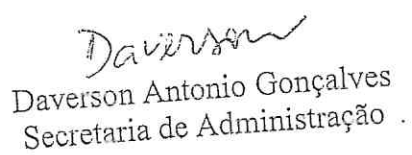 Daverson
Daverson Antonio Gonçalves
Secretaria de Administração .